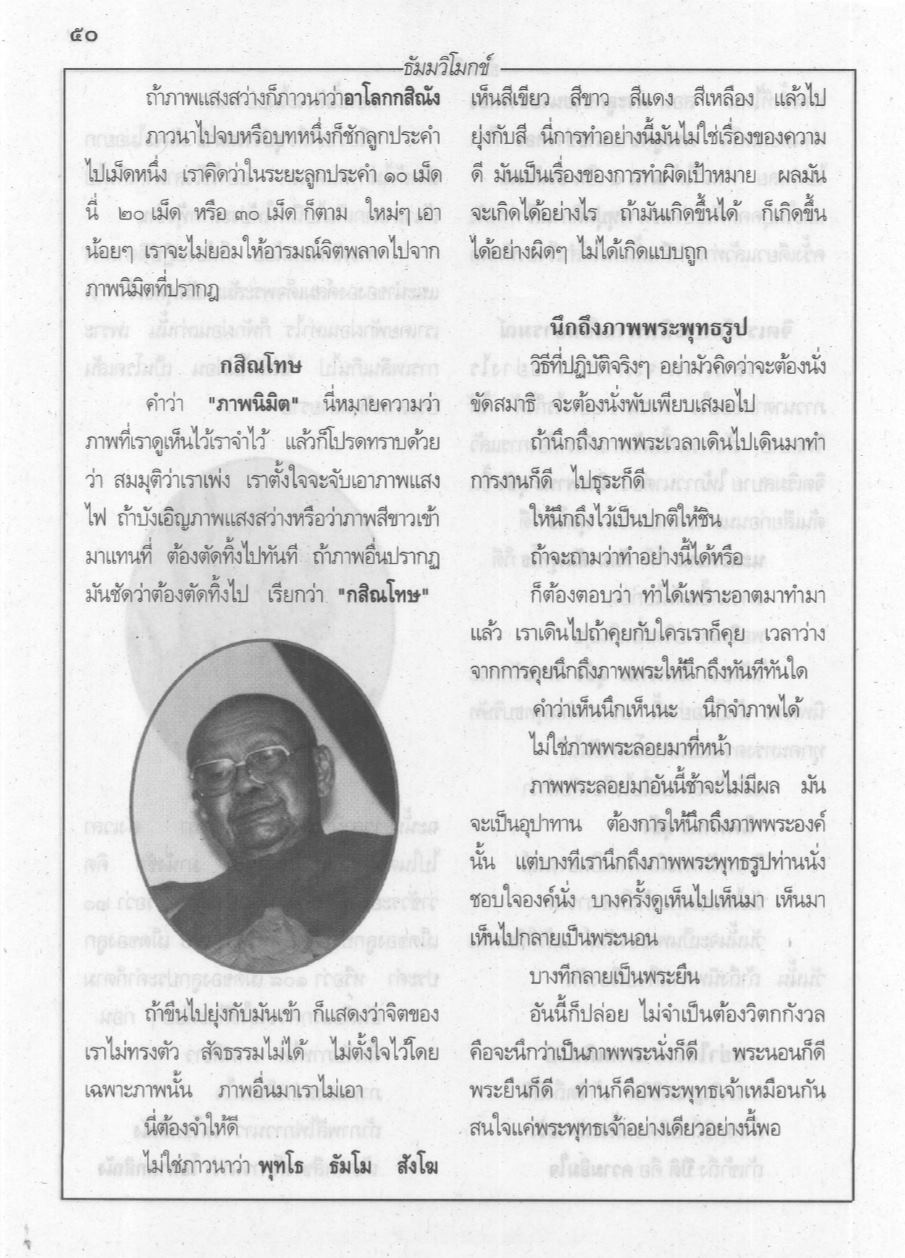 ๕๐
ธัมมวิโมกข์
ถ้าภาพแสงสว่างก็ภาวนาว่าอาโลกกสิณัง
ภาวนาไปจบหรือบทหนึ่งก็ชักลูกประคำ
ไปเม็ดหนึ่ง เราคิดว่าในระยะลูกประคำ ๑๐ เม็ด
นี่ ๒๐ เม็ด หรือ ๓๐ เม็ด ก็ตาม ใหม่ๆ เอา
น้อยๆ เราจะไม่ยอมให้อารมณ์จิตพลาดไปจาก
ภาพนิมิตที่ปรากฏ
กสิณโทษ
คำว่า "ภาพนิมิต" นี่หมายความว่า
ภาพที่เราดูเห็นไว้เราจำไว้ แล้วก็โปรดทราบด้วย
ว่า สมมุติว่าเราเพ่ง เราตั้งใจจะจับเอาภาพแสง
ไฟ ถ้าบังเอิญภาพแสงสว่างหรือว่าภาพสีขาวเข้า
มาแทนที่ ต้องตัดทิ้งไปทันที ถ้าภาพอื่นปรากฏ
มันชัดว่าต้องตัดทิ้งไป เรียกว่า "กสิณโทษ"
ถ้าขืนไปยุ่งกับมันเข้า ก็แสดงว่าจิตของ
เราไม่ทรงตัว สัจธรรมไม่ได้ ไม่ตั้งใจไว้โดย
เฉพาะภาพนั้น ภาพอื่นมาเราไม่เอา
นี่ต้องจำให้ดี
ไม่ใช่ภาวนาว่า พุทโธ ธัมโม สังโฆ
เห็นสีเขียว สีขาว สีแดง สีเหลือง แล้วไป
ยุ่งกับสี นี่การทำอย่างนี้มันไม่ใช่เรื่องของความ
ดี มันเป็นเรื่องของการทำผิดเป้าหมาย ผลมัน
จะเกิดได้อย่างไร ถ้ามันเกิดขึ้นได้ ก็เกิดขึ้น
ได้อย่างผิดๆ ไม่ได้เกิดแบบถูก
นึกถึงภาพพระพุทธรูป
วิธีที่ปฏิบัติจริงๆ อย่ามัวคิดว่าจะต้องนั่ง
ขัดสมาธิ จะต้องนั่งพับเพียบเสมอไป
ถ้านึกถึงภาพพระเวลาเดินไปเดินมาทำ
การงานก็ดี ไปธุระก็ดี
ให้นึกถึงไว้เป็นปกติให้ชิน
ถ้าจะถามว่าทำอย่างนี้ได้หรือ
ก็ต้องตอบว่า ทำได้เพราะอาตมาทำมา
แล้ว เราเดินไปถ้าคุยกับใครเราก็คุย เวลาว่าง
จากการคุยนึกถึงภาพพระให้นึกถึงทันทีทันใด
คำว่าเห็นนึกเห็นนะ นึกจำภาพได้
ไม่ใช่ภาพพระลอยมาที่หน้า
ภาพพระลอยมาอันนี้ช้าจะไม่มีผล มัน
จะเป็นอุปาทาน ต้องการให้นึกถึงภาพพระองค์
นั้น แต่บางทีเรานึกถึงภาพพระพุทธรูปท่านนั่ง
ชอบใจองค์นั่ง บางครั้งดูเห็นไปเห็นมา เห็นมา
เห็นไปกลายเป็นพระนอน
บางทีกลายเป็นพระยืน
อันนี้ก็ปล่อย ไม่จำเป็นต้องวิตกกังวล
คือจะนึกว่าเป็นภาพพระนั่งก็ดี พระนอนก็ดี
พระยืนก็ดี ท่านก็คือพระพุทธเจ้าเหมือนกัน
สนใจแค่พระพุทธเจ้าอย่างเดียวอย่างนี้พอ